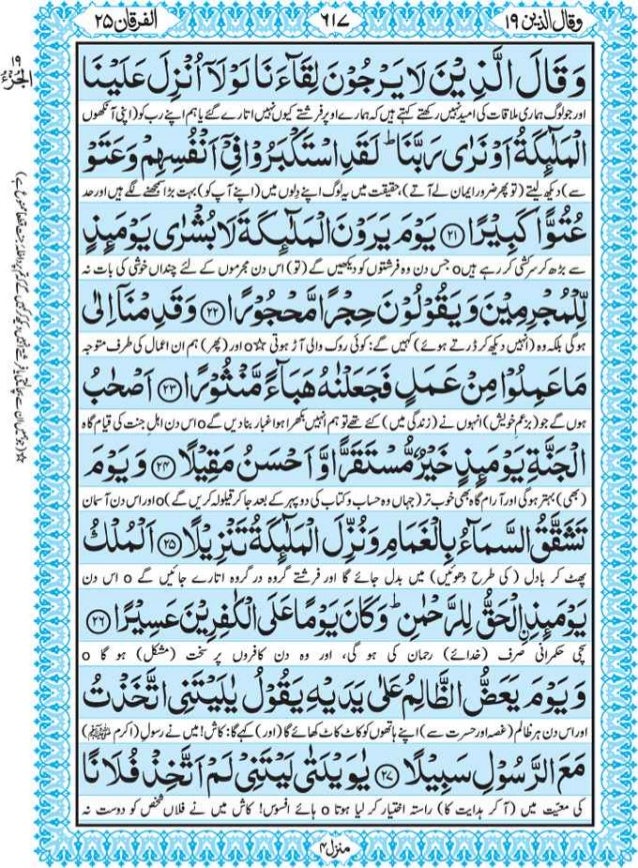 وقال الذين ۱۹ ۶۱۷ الفرقان ۲۵
وَ قَالَ الَّذِيْنَ لَا يَرْجُوْنَ لِقَآءَنَا لَوْلَاۤ اُنْزِلَ عَلَيْنَا
اور جو لوگ ہماری ملاقات کی امید نہیں رکھتے کہتے ہیں کہ ہمارے اوپر فرشتے کیوں نہیں اتارے گئے یا ہم اپنے رب کو (اپنی آنکھوں
الْمَلٰٓئِكَةُ اَوْ نَرٰى رَبَّنَا ؕ لَقَدِ اسْتَكْبَرُوْا فِيْۤ اَنْفُسِهِمْ وَ عَتَوْ
سے) دیکھ لیتے (تو پھر ضرور ایمان لے آتے)، حقیقت میں یہ لوگ اپنے دلوں میں (اپنے آپ کو) بہت بڑا سمجھنے لگے ہیں اور حد
عُتُوًّا كَبِيْرًا ۲۱ يَوْمَ يَرَوْنَ الْمَلٰٓئِكَةَ لَا بُشْرٰى يَوْمَئِذٍ
سے بڑھ کر سرکشی کر رہے ہیںo جس دن وہ فرشتوں کو دیکھیں گے (تو) اس دن مجرموں کے لئے چنداں خوشی کی بات نہ
لِّلْمُجْرِمِيْنَ وَ يَقُوْلُوْنَ حِجْرًا مَّحْجُوْرًا ۲۲ وَ قَدِمْنَاۤ اِلٰى
ہوگی بلکہ وہ (انہیں دیکھ کر ڈرتے ہوئے) کہیں گے: کوئی روک والی آڑ ہوتی☆o اور (پھر) ہم ان اعمال کی طرف متوجہ
مَا عَمِلُوْا مِنْ عَمَلٍ فَجَعَلْنٰهُ هَبَآءً مَّنْثُوْرًا ۲۳ اَصْحٰبُ
ہوں گے جو (بزعمِ خویش) انہوں نے (زندگی میں) کئے تھے تو ہم انہیں بکھرا ہوا غبار بنا دیں گےo اس دن اہلِ جنت کی قیام گاہ
الْجَنَّةِ يَوْمَئِذٍ خَيْرٌ مُّسْتَقَرًّا وَّ اَحْسَنُ مَقِيْلًا ۲۴ وَ يَوْمَ
(بھی) بہتر ہوگی اور آرام گاہ بھی خوب تر (جہاں وہ حساب و کتاب کی دوپہر کے بعد جا کر قیلولہ کریں گے)o اور اس دن آسمان
تَشَقَّقُ السَّمَآءُ بِالْغَمَامِ وَ نُزِّلَ الْمَلٰٓئِكَةُ تَنْزِيْلًا ۲۵ اَلْمُلْكُ
پھٹ کر بادل (کی طرح دھوئیں) میں بدل جائے گا اور فرشتے گروہ در گروہ اتارے جائیں گے o اس دن
يَوْمَئِذِ ۨالْحَقُّ لِلرَّحْمٰنِ ؕ وَ كَانَ يَوْمًا عَلَى الْكٰفِرِيْنَ عَسِيْرًا ۲۶
سچی حکمرانی صرف (خدائے) رحمان کی ہو گی، اور وہ دن کافروں پر سخت (مشکل) ہو گا o
وَ يَوْمَ يَعَضُّ الظَّالِمُ عَلٰى يَدَيْهِ يَقُوْلُ يٰلَيْتَنِي اتَّخَذْتُ
اور اس دن ہر ظالم (غصہ اور حسرت سے) اپنے ہاتھوں کو کاٹ کاٹ کھائے گا (اور) کہے گا: کاش! میں نے رسولِ (اکرم ﷺ)
مَعَ الرَّسُوْلِ سَبِيْلًا ۲۷ يٰوَيْلَتٰى لَيْتَنِيْ لَمْ اَتَّخِذْ فُلَانًا
کی معیت میں (آ کر ہدایت کا) راستہ اختیار کر لیا ہوتا o ہائے افسوس! کاش میں نے فلاں شخص کو دوست نہ
منزل ۴
الجزء ۱۹